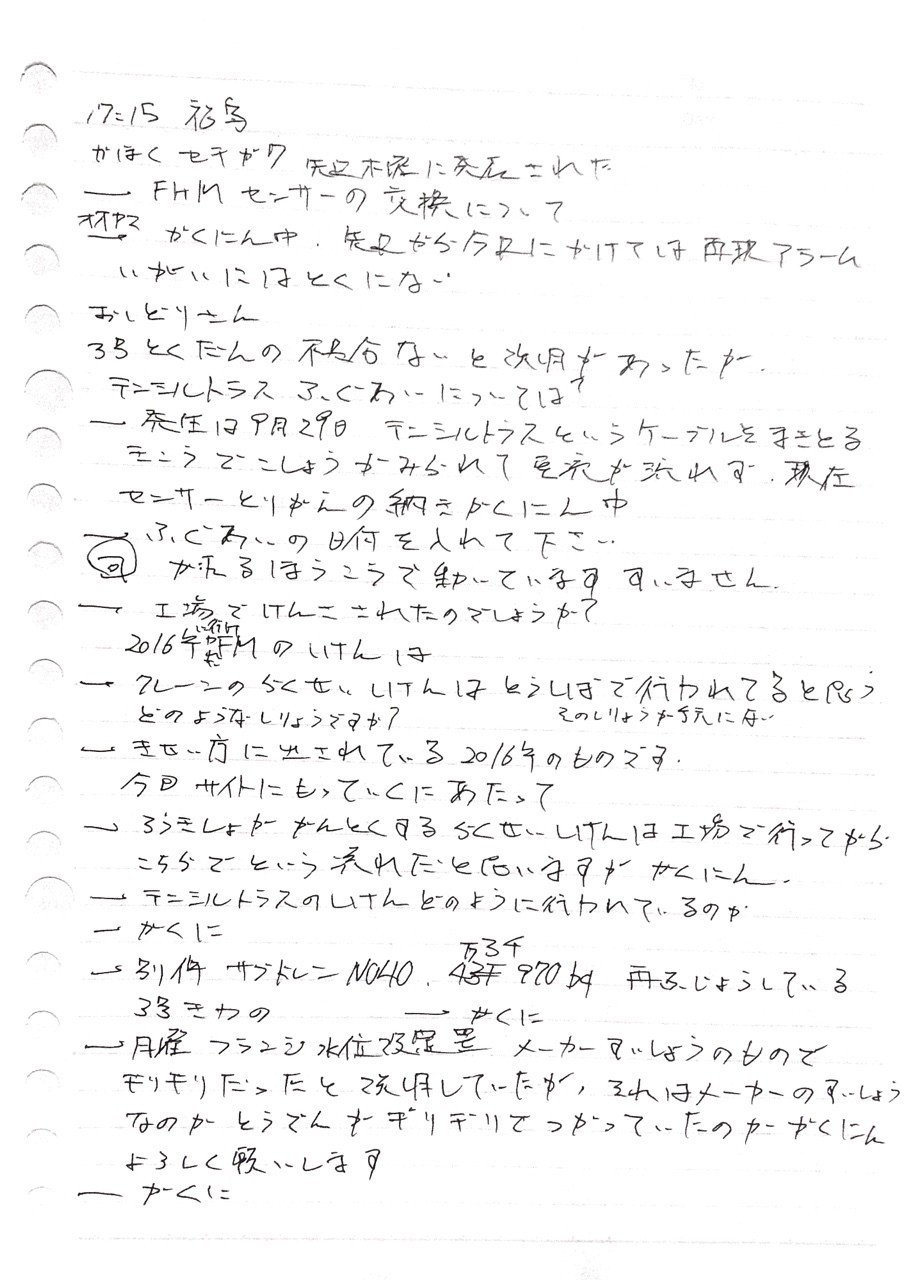 17:15 福島
かほく セキガワ 先日 木曜に発表された
→ FHM センサーの交換について
オオヤマ
→ かくにん中. 先日から今日にかけては 再現アラーム
いがいにはとくにない
おしどりさん
3号とくだんの 不具合 ないと説明があったが.
テンシルトラス ふぐあいについては?
→ 発生は9月29日 テンシルトラスというケーブルをまきとる
きこうでこしょうがみられて 電気が流れず. 現在
センサーとりかんの納きかくにん中
→ ふぐあいの日付を入れて下さい
回 が流るほうこうで動いています すいません.
→ 工場でけんこされたのでしょうか?
2016年 FHMのしけんは
→ クレーンのらくせいしけんはとうしばで行われてると思う
どのようなしりょうですか? そのしりょうが手元にない
→ きせい庁に出されている2016年のものです.
今回 サイトにもっていくにあたって
→ ろうきしょがかんとくするらくせいしけんは工場で行ってから
こちらでという流れだと思いますが かくにん.
→ テンシルトラスのしけんどのように行われているのか
→ かくに
万3千
→ 別件 サブドレンNO40. 970bq 再ふじょうしている
3号きわの → かくに
→ 月曜 フランジ 水位設定置 メーカーすいしょうのもので
ギリギリだったと説明していたが, それはメーカーのすいしょう
なのかとうでんがギリギリでつかっていたのか かくにん
よろしく願いします
→ かくに